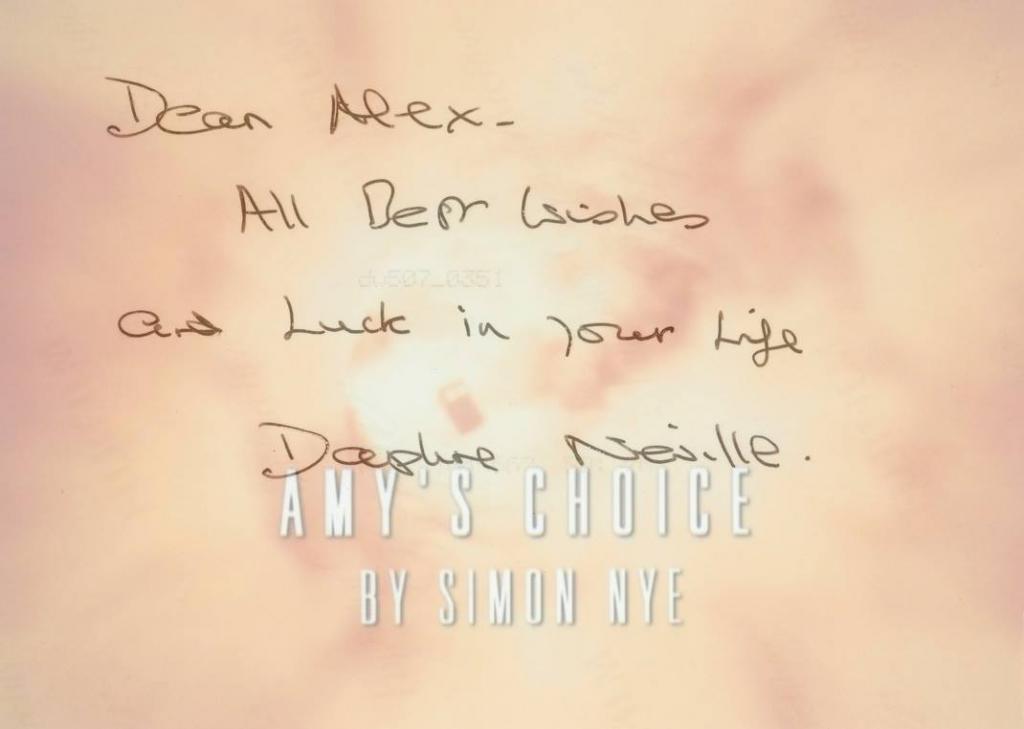 Dear Alex -
All Best Wishes
dw507_0351
and Luck in your Life
Daphne Neville.
AMY'S CHOICE
BY SIMON NYE